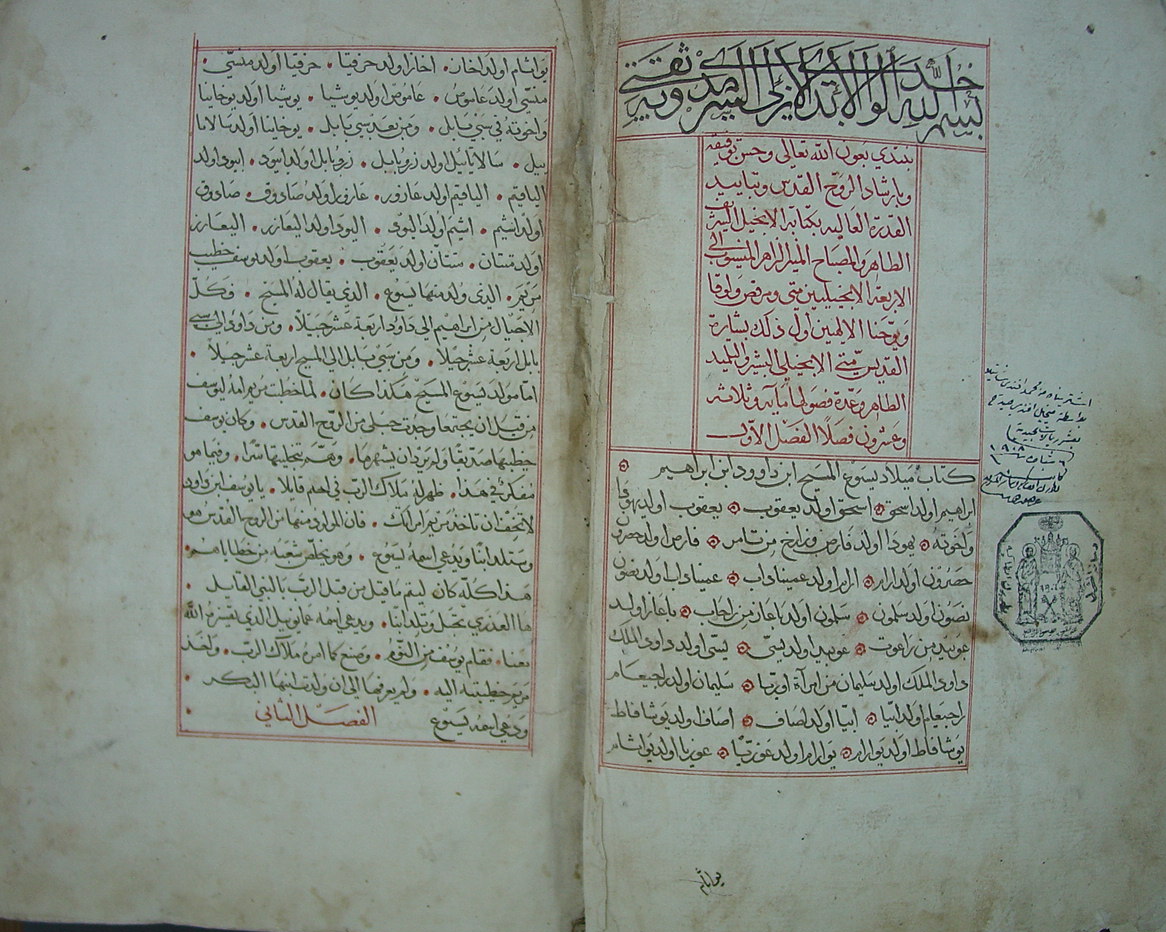 بسم الله
نبتدي بعون الله تعالى وحسن توفيقه
وبارشاد الروح القدس وبتاييد
القدرة العاليه بكتابة الانجيل الشريف
الطاهر والمصباح المنير الزاهر المنسوب الى
الاربعة الانجيليين متى ومرقص ولوقا
ويوحنا الالهيين اول ذلك بشارة
القديس متى الانجيلي البشير التلميد
الطاهر وعدة فصولها مايه وثلاثه
وعشرون فصلاً الفصل الاول
كتاب ميلاد يسوع المسيح ابن داوود ابن ابراهيم
ابراهيم اولد اسحق اسحق اولد يعقوب يعقوب اولد يهوذا
واخوته يهودا اولد فارص وزارح من تامر فارص اولد حصرون
حصرون اولد ارام ارام اولد عميناداب عميناداب اولد نصون
نصون اولد سلمون سلمون اولد باعاز من راحاب باعاز اولد
عوبيد من راعوت عوبيد اولد يسى يسى اولد داود الملك
داود الملك اولد سليمان من امرآة اوريا سليمان اولد راجبعام
راجبعام اولد ابيا ابيا اولد اصاف اصاف اولد يوشافاط
يوشافاط اولد يوارام يوارام اولد عوزيا عوزيا اولد يواثام
يواثام
يواثام اولد اخاز اخاز اولد حزقيا حزقيا اولد منسى
منسى اولد عاموص عاموص اولد يوشيا يوشيا اولد يوخانيا
واخوته في سبي بابل ومن بعد سبي بابل يوخانيا اولد سالاتا
ييل سالاتاييل اولد زروبابل زروبابل اولد ابيود ابيود اولد
الياقيم الياقيم اولد عازور عازور اولد صادوق صادوق
اولد اشيم اشيم اولد اليود اليود اولد اليعازر اليعازر
اولد متتان متتان اولد يعقوب يعقوب اولد يوسف خطيب
مريم الذي ولد منها يسوع الذي يقال له المسيح فكل
الاجيال من ابراهيم الى داود اربعة عشر جيلاً ومن داود الى سبي
بابل اربعة عشر جيلاً ومن سبي بابل الى المسيح اربعة عشر جيلاً
اما مولد يسوع المسيح هكذا كان لما خطبت مريم امه ليوسف
من قبل ان يجتمعا وجدت حبلى من الروح القدس وكان يوسف
خطيبها صديقاً ولم يرد ان يشهرها وهم بتخليتها سراً وفيما هو
مفكر في هذا ظهر له ملاك الرب في الحلم قايلا يا يوسف ابن داود
لا تخف ان تاخذ مريم امراتك فان المولود منها من الروح القدس هو
وستلد ابناً ويدعى اسمه يسوع وهو يخلص شعبه من خطاياهم
هذا كله كان ليتم ما قيل من قبل الرب بالنبي القايل
ها العذري تحبل وتلد ابناً ويدعى اسمه عمانوييل الذي تفسيره الله
معنا فقام يوسف من النوم وصنع كما امره ملاك الرب واخذ
مريم خطيبته اليه ولم يعرفها الى ان ولدت ابنها البكر
ودعي اسمه يسوع الفصل الثاني